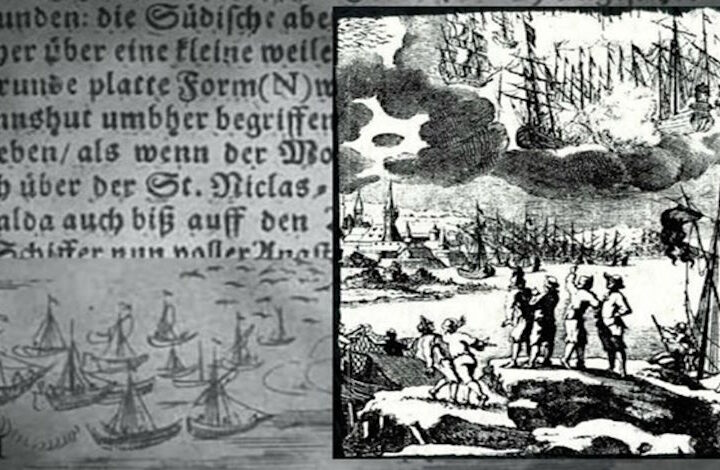 unden: die Südische abe
her über eine kleine weile
runde platte Form(N)w
nnshut umbher begriffen
eben/ als wenn der Mo
h über der St. Niclas⸗
alda auch biß auff den
Schiffer nun voller Angst